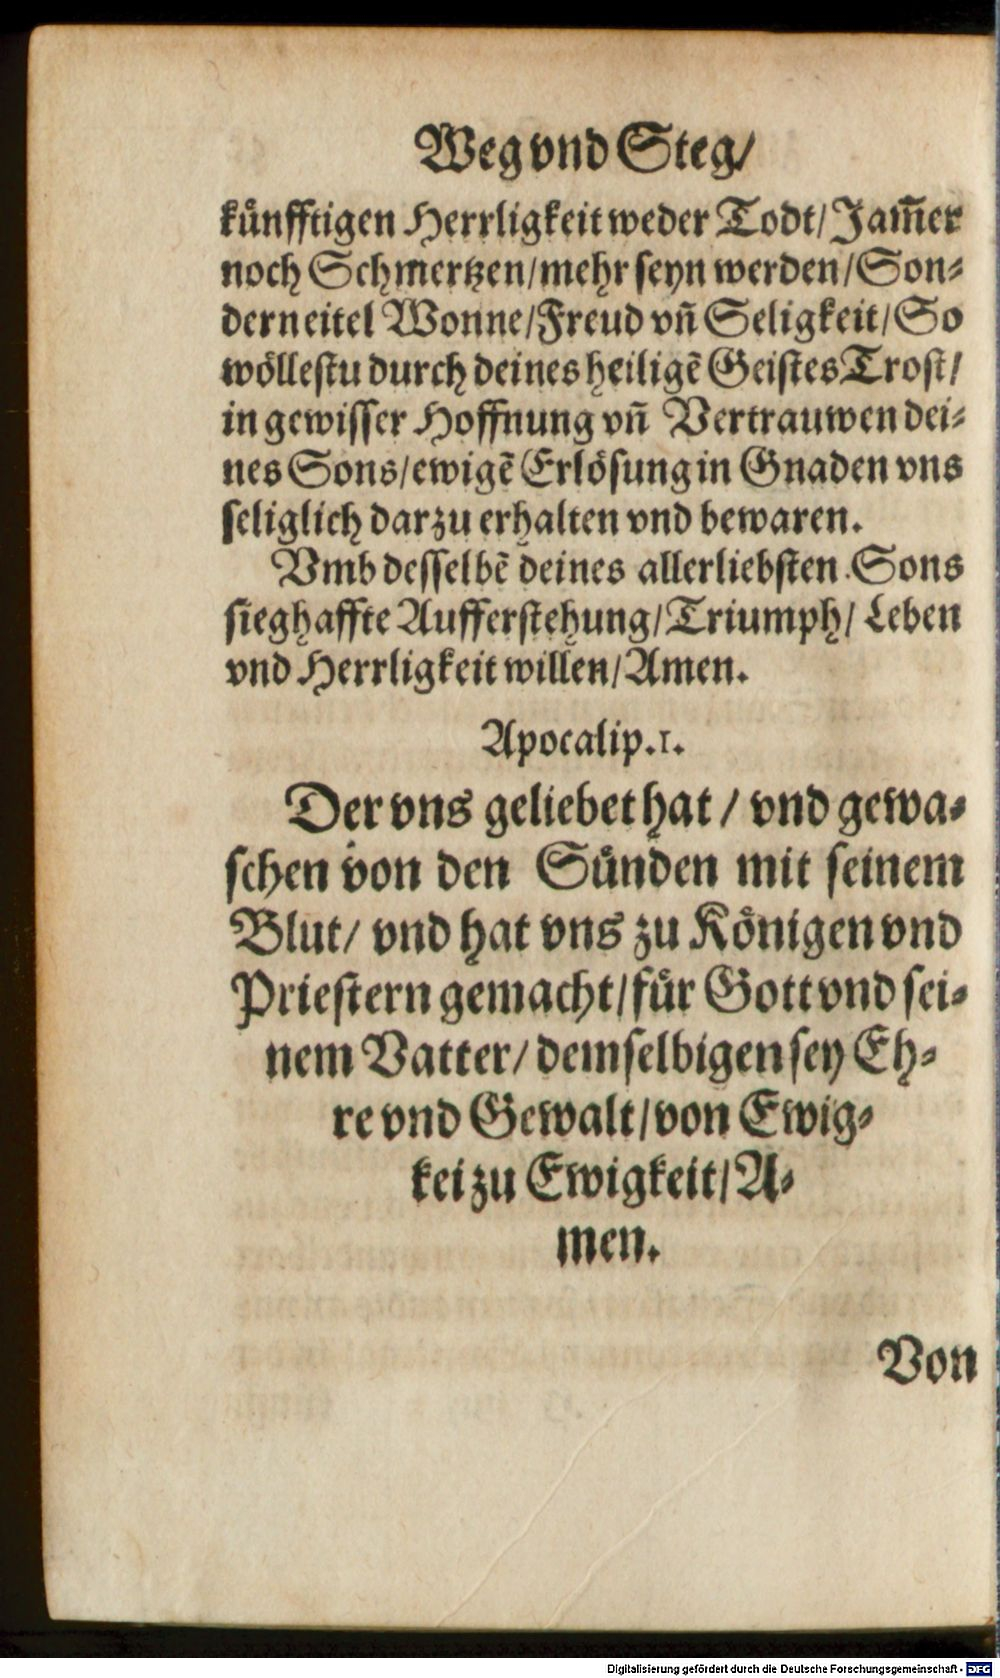 Weg vnd Steg/
kuͤnfftigen Herrligkeit weder Todt/ Jam̃er
noch Schmertzen/ mehr seyn werden/ Son⸗
dern eitel Wonne/ Freud vñ Seligkeit/ So
woͤllestu durch deines heiligẽ Geistes Trost/
in gewisser Hoffnung vñ Vertrauwen dei⸗
nes Sons/ ewigẽ Erloͤsung in Gnaden vns
seliglich darzu erhalten vnd bewaren.
Vmb desselbẽ deines allerliebsten Sons
sieghaffte Aufferstehung/ Triumph/ Leben
vnd Herrligkeit willen/ Amen.
Apocalip.1.
Der vns geliebet hat / vnd gewa⸗
schen von den Suͤnden mit seinem
Blut/ vnd hat vns zu Koͤnigen vnd
Priestern gemacht/ fuͤr Gott vnd sei⸗
nem Vatter/ demselbigen sey Eh⸗
re vnd Gewalt/ von Ewig⸗
kei zu Ewigkeit/ A⸗
men.
Von
Digitalisierung gefördert durch die Deutsche Forschungsgemeinschaft - DFG